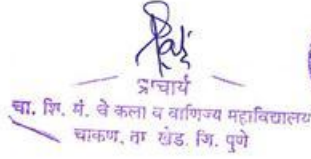 प्राचार्य
चा. शि. मं. चे कला व वाणिज्य महाविद्यालय
चाकण, ता खेड. जि. पुणे